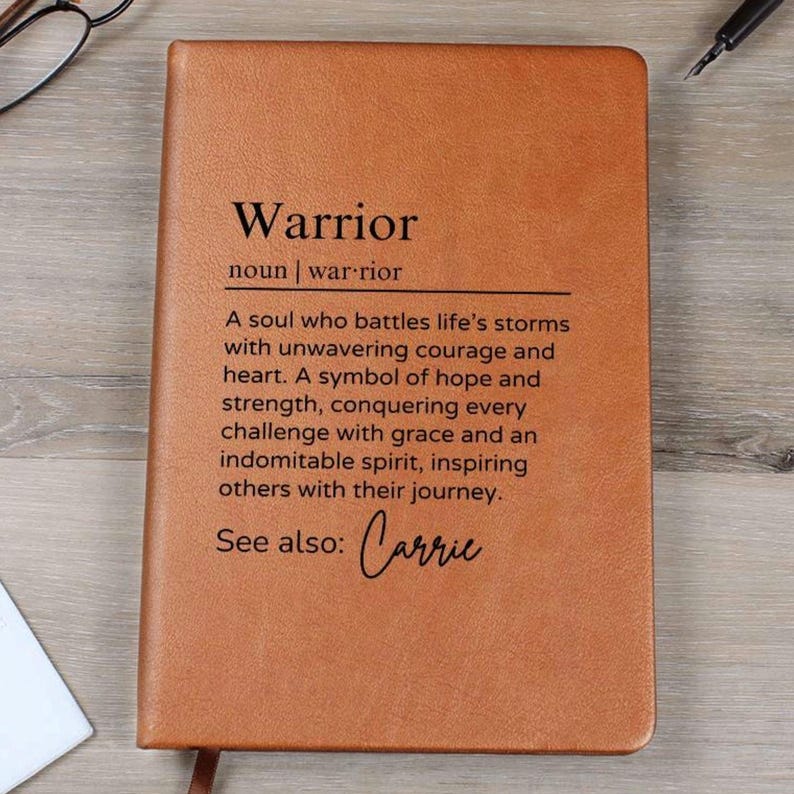 Warrior
noun | war·rior
A soul who battles life's storms
with unwavering courage and
heart. A symbol of hope and
strength, conquering every
challenge with grace and an
indomitable spirit, inspiring
others with their journey.
See also: Carrie